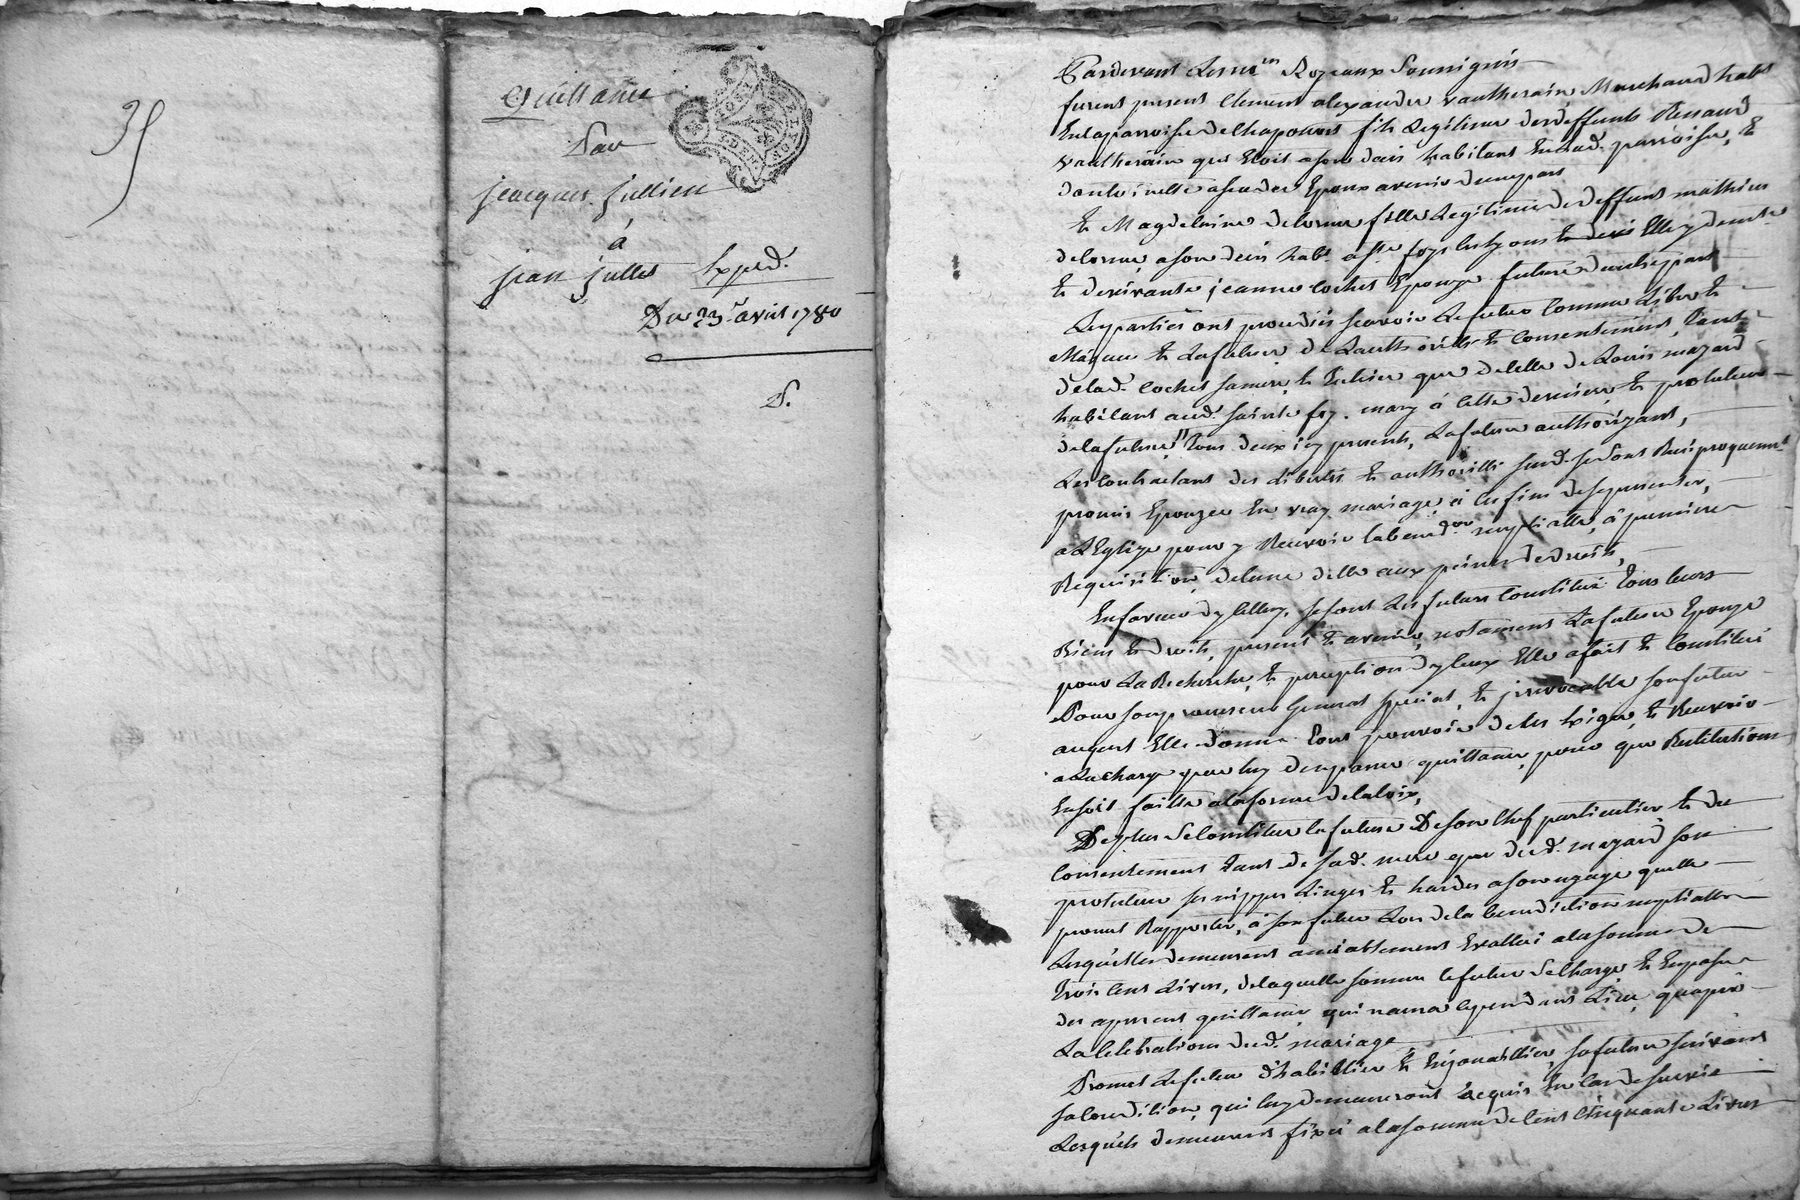 35
Quittance
Par
jeacques jullien
á
jean jullet Exped.
Du 23 avril 1780
P.
Pardevant Les no.res Royeaux Soussignés
furent present Clement alexandre vautherain Marchand hab.t
En la parroisse de Chaponost fils Legitime de deffunts Renaud
vautherain qui Etoit a son deces habitant En lad. parroisse, Et
Epoux avenir d'une part
Et Magdelaine delorme fille Legitime de deffunt mathieu
delorme, a son deces hab.t a S.te foy Les Lyons Elle y demt.e
Et de vivante jeanne cochet Epouze future d'autre part
Les parties ont procedés scavoir Le futur comme Libre Et
Majeur Et La future de L'authorité Et Consentement, Tant
de lad. cochet sa mere, que de celle de Louis mazard
habitant aud. Sainte foy. mary á cette derniere Et protuteur
de la future, Tous deux icy presents, La future authorizant,
Les Contractant des libertés Et authorités susd. se sont Reciproquement
promis Epouzer En vray mariage, á ces fins de se presenter,
a L'Eglize pour y Recevoir la bened.on nuptialle, á premiere
Requisition de L'une d'elle aux peines de droit,
En faveur dycelluy, se sont Les futurs Constitués Tous leurs
Biens Et droits, present Et avenir, notament La future Epouze
pour La Recherche, Et perception d'yceux Elle a fait Et Constitué
Pour son procureur General special, Et jrrevocable son futur
auquel Elle donne Tout pouvoir de les Exiger, Et Recevoir
a La charge par luy d'en passer quittance, pour que Restitution
En soit faitte a la forme de la loix,
De plus Se Constitue la future De son Chef particulier Et du
Consentement Tant de sad. mere que dud. mazard son
protuteur ses nippes Linges Et hardes a son uzage quelle
promet Rapporter, á son futur Lors de la benediction nuptialle
Lesquelles demeurent amiablement Evalluées a la somme de
Trois Cent Livres, de laquelle somme le futur Se Charge Et En passe
des apresent quittance, qui n'aura cependant Lieu, qu'après
La Celebration dud. mariage
Promet Le futur d'habiller Et Enjoualler, sa future suivant
sa Condition, qui luy demeureront acquis En Cas de survie
Lesquels demeurent fixés a la somme de Cent Cinquante Livres